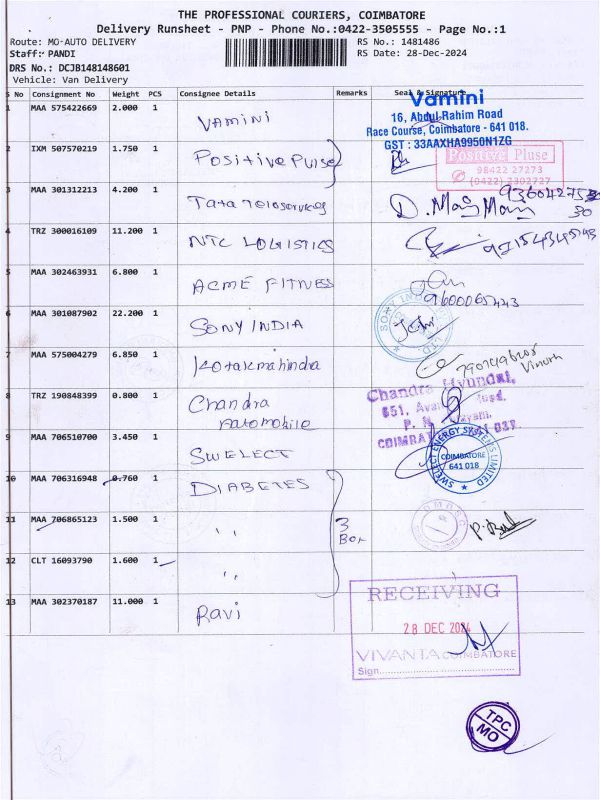 THE PROFESSIONAL COURIERS, COIMBATORE
Delivery Runsheet - PNP - Phone No.:0422-3505555 - Page No.:1
Route: MO-AUTO DELIVERY RS No.: 1481486
Staff: PANDI RS Date: 28-Dec-2024
DRS No.: DCJB148148601
Vehicle: Van Delivery
S No Consignment No Weight PCS Consignee Details Remarks Seal & Signature
1 MAA 575422669 2.000 1 VAMINI
Vamini
16, Abdul Rahim Road
Race Course, Coimbatore - 641 018.
GST : 33AAXHA9950N1ZG
2 IXM 507570219 1.750 1 Positive Pulse
Positive Pluse
98422 27273
(0422) 2302727
3 MAA 301312213 4.200 1 Tata Teleservices
4 TRZ 300016109 11.200 1 NTC LOGISTICS
5 MAA 302463931 6.800 1 ACME FITNESS
6 MAA 301087902 22.200 1 SONY INDIA
7 MAA 575004279 6.850 1 Kotakmahindra
Vinoth
8 TRZ 190848399 0.800 1 Chandra
Automobile
Chandra Hyundai,
651, Road,
P. N
COIMBAT 037.
9 MAA 706510700 3.450 1 SWELECT
SWELECT ENERGY SYSTEMS LIMITED
COIMBATORE
641 018
10 MAA 706316948 0.760 1 DIABETES
11 MAA 706865123 1.500 1 ,, 3
Box
12 CLT 16093790 1.600 1 ,,
13 MAA 302370187 11.000 1 Ravi
RECEIVING
28 DEC 2024
VIVANTA COIMBATORE
Sign
TPC
MO